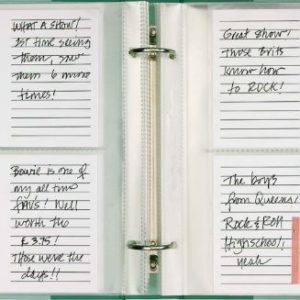 WHAT A SHOW!
1st time seeing
them, saw
them 6 more
times!
Great show!
Those Brits
know how
to ROCK!
Bowie is one of
my all time
fav's! Well
worth the
£3.75!
Those were the
days!!
The boys
from Queens!
Rock & Roll
Highschool,
yeah